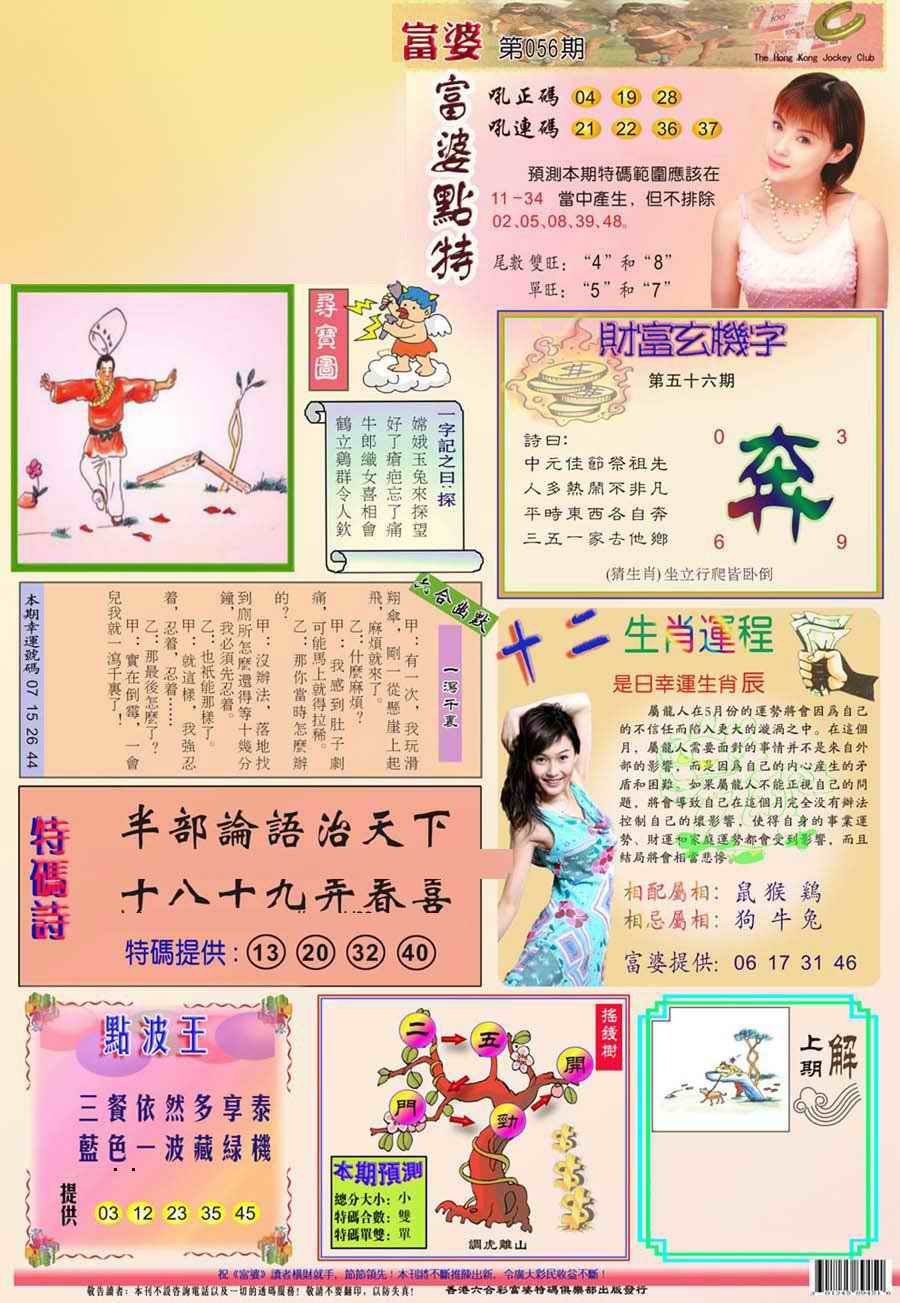 富婆 第056期
The Hong Kong Jockey Club
富婆點特
吼正碼 04 19 28
吼連碼 21 22 36 37
預測本期特碼範圍應該在
11-34 當中產生，但不排除
02、05、08、39、48。
尾數雙旺：“4”和“8”
單旺：“5”和“7”
尋寶圖
一字記之曰：探
嫦娥玉兔來探望
好了瘡疤忘了痛
牛郎織女喜相會
鶴立鷄群令人欽
財富玄機字
第五十六期
詩曰：
中元佳節祭祖先
人多熱鬧不非凡
平時東西各自奔
三五一家去他鄉
0 3
奔
6 9
(猜生肖)坐立行爬皆卧倒
六合幽默
一瀉千裏
甲：有一次，我玩滑
翔傘，剛一從懸崖上起
飛，麻煩就來了。
乙：什麼麻煩？
甲：我感到肚子劇
痛，可能馬上就得拉稀。
乙：那你當時怎麼辦
的？
甲：沒辦法，落地找
到廁所怎麼還得等十幾分
鐘，我必須先忍着。
乙：也衹能那樣了。
甲：就這樣，我強忍
着，忍着，忍着……
乙：那最後怎麼了？
甲：實在倒霉，一會
兒我就一瀉千裏了！
本期幸運號碼 07 15 26 44
十二生肖運程
是日幸運生肖辰
屬龍人在5月份的運勢將會因爲自己
的不信任而陷入更大的漩渦之中。在這個
月，屬龍人需要面對的事情并不是來自外
部的影響，而是因爲自己的内心産生的矛
盾和困難。如果屬龍人不能正視自己的問
題，將會導致自己在這個月完全没有辦法
控制自己的壞影響，使得自身的事業運
勢、財運和家庭運勢都會受到影響，而且
結局將會相當悲慘。
相配屬相：鼠 猴 鷄
相忌屬相：狗 牛 兔
富婆提供：06 17 31 46
特碼詩
半部論語治天下
十八十九弄春喜
特碼提供：13 20 32 40
點波王
三餐依然多享泰
藍色一波藏緑機
提供 03 12 23 35 45
搖錢樹
二 五 開
門 勁
本期預測
總分大小：小
特碼合數：雙
特碼單雙：單
調虎離山
上期解
祝《富婆》讀者橫財就手，節節領先！本刊將不斷推陳出新，令廣大彩民收益不斷！
敬告讀者：本刊不設咨詢電話以及一切的透碼服務！敬請不要翻印，以防失真！
香港六合彩富婆特碼俱樂部出版發行